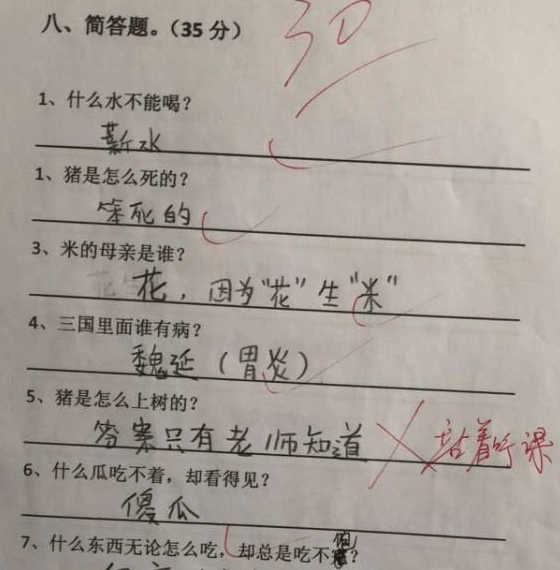 八、简答题。（35 分）
30
1、什么水不能喝？
薪水
1、猪是怎么死的？
笨死的
3、米的母亲是谁？
花，因为“花”生“米”
4、三国里面谁有病？
魏延（胃炎）
5、猪是怎么上树的？
答案只有老师知道
站着听课
6、什么瓜吃不着，却看得见？
傻瓜
7、什么东西无论怎么吃，却总是吃不饱？